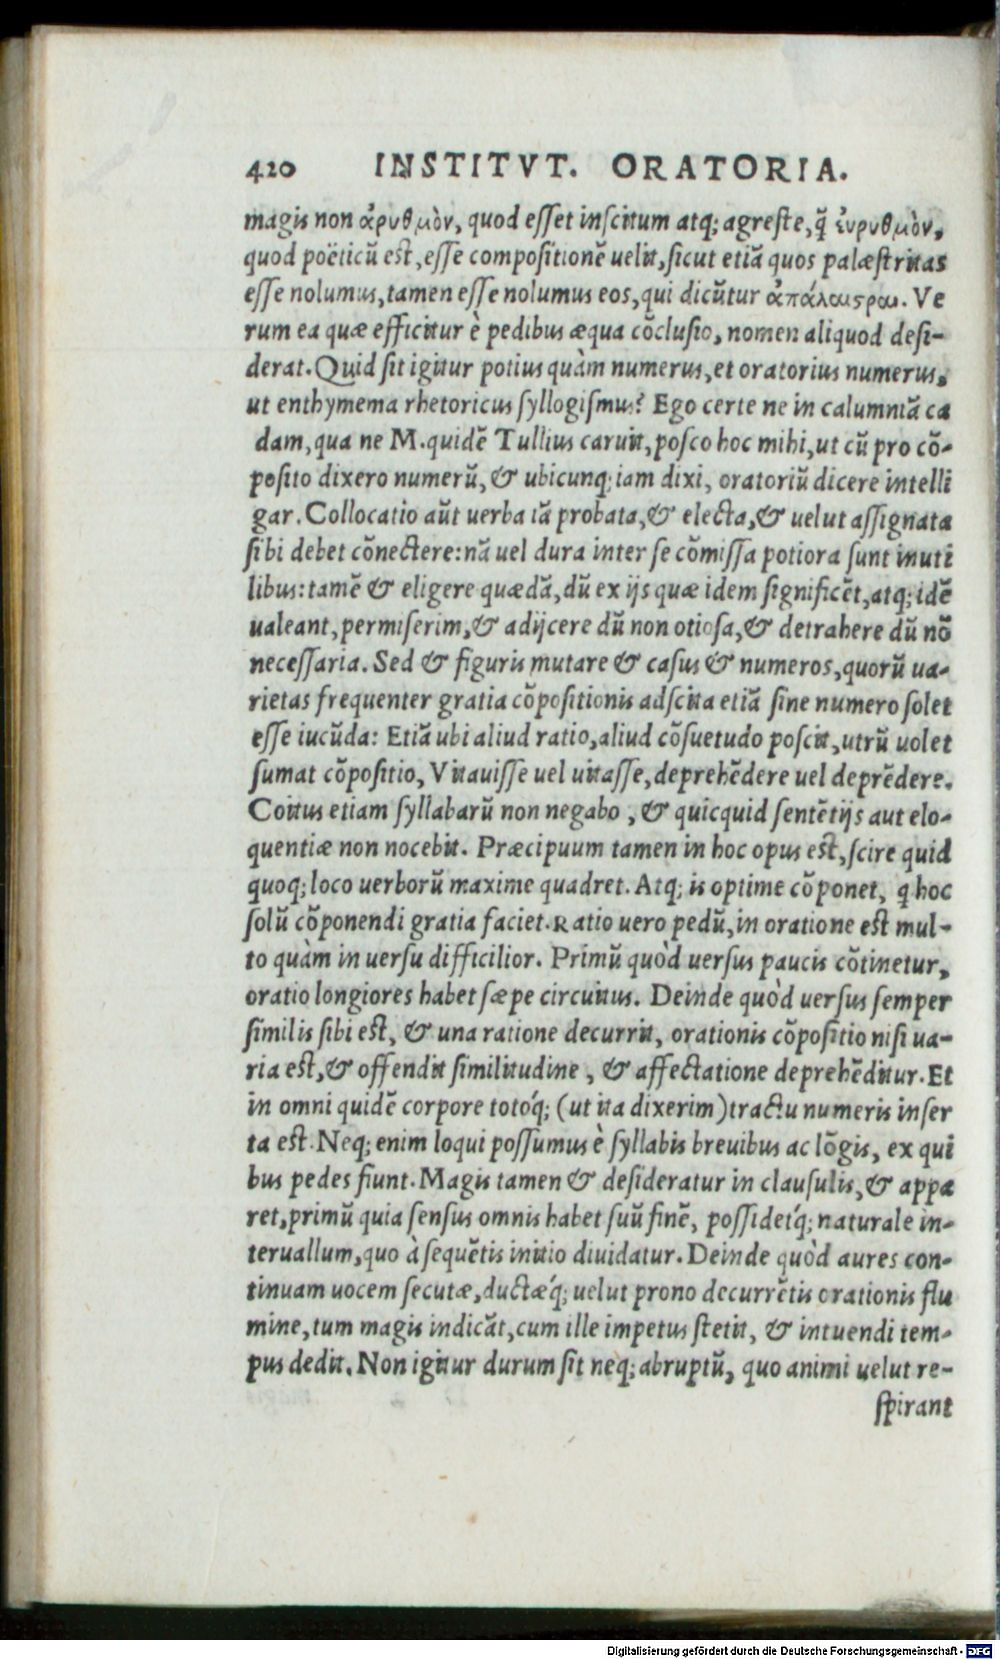 420 INSTITVT. ORATORIA.
magis non ἀρυθμὸν, quod esset inscitum atq; agreste, q̃ ἐνρυθμὸν,
quod poëticũ est, esse compositionẽ uelit, sicut etiã quos palæstritas
esse nolumus, tamen esse nolumus eos, qui dicũtur ἀπάλαιςραι. Ve
rum ea quæ efficitur è pedibus æqua cõclusio, nomen aliquod desi-
derat. Quid sit igitur potius quàm numerus, et oratorius numerus,
ut enthymema rhetoricus syllogismus? Ego certe ne in calumniã ca
dam, qua ne M. quidẽ Tullius caruit, posco hoc mihi, ut cũ pro cõ-
posito dixero numerũ, & ubicunq; iam dixi, oratoriũ dicere intelli
gar. Collocatio aũt uerba iã probata, & electa, & uelut assignata
sibi debet cõnectere: nã uel dura inter se cõmissa potiora sunt inuti
libus: tamẽ & eligere quædã, dũ ex ijs quæ idem significẽt, atq; idẽ
ualeant, permiserim, & adijcere dũ non otiosa, & detrahere dũ nõ
necessaria. Sed & figuris mutare & casus & numeros, quorũ ua-
rietas frequenter gratia cõpositionis adscita etiã sine numero solet
esse iucũda: Etiã ubi aliud ratio, aliud cõsuetudo poscit, utrũ uolet
sumat cõpositio, Vitauisse uel uitasse, deprehẽdere uel deprẽdere.
Coitus etiam syllabarũ non negabo, & quicquid sentẽtijs aut elo-
quentiæ non nocebit. Præcipuum tamen in hoc opus est, scire quid
quoq; loco uerborũ maxime quadret. Atq; is optime cõponet, q hoc
solũ cõponendi gratia faciet. Ratio uero pedũ, in oratione est mul-
to quàm in uersu difficilior. Primũ quòd uersus paucis cõtinetur,
oratio longiores habet sæpe circuitus. Deinde quòd uersus semper
similis sibi est, & una ratione decurrit, orationis cõpositio nisi ua-
ria est, & offendit similitudine, & affectatione deprehẽditur. Et
in omni quidẽ corpore totóq; (ut ita dixerim) tractu numeris inser
ta est. Neq; enim loqui possumus è syllabis breuibus ac lõgis, ex qui
bus pedes fiunt. Magis tamen & desideratur in clausulis, & appa
ret, primũ quia sensus omnis habet suũ finẽ, possidetq́; naturale in-
teruallum, quo à sequẽtis initio diuidatur. Deinde quòd aures con-
tinuam uocem secutæ, ductæq́; uelut prono decurrẽtis orationis flu
mine, tum magis indicãt, cum ille impetus stetit, & intuendi tem-
pus dedit. Non igitur durum sit neq; abruptũ, quo animi uelut re-
spirant
Digitalisierung gefördert durch die Deutsche Forschungsgemeinschaft - DFG